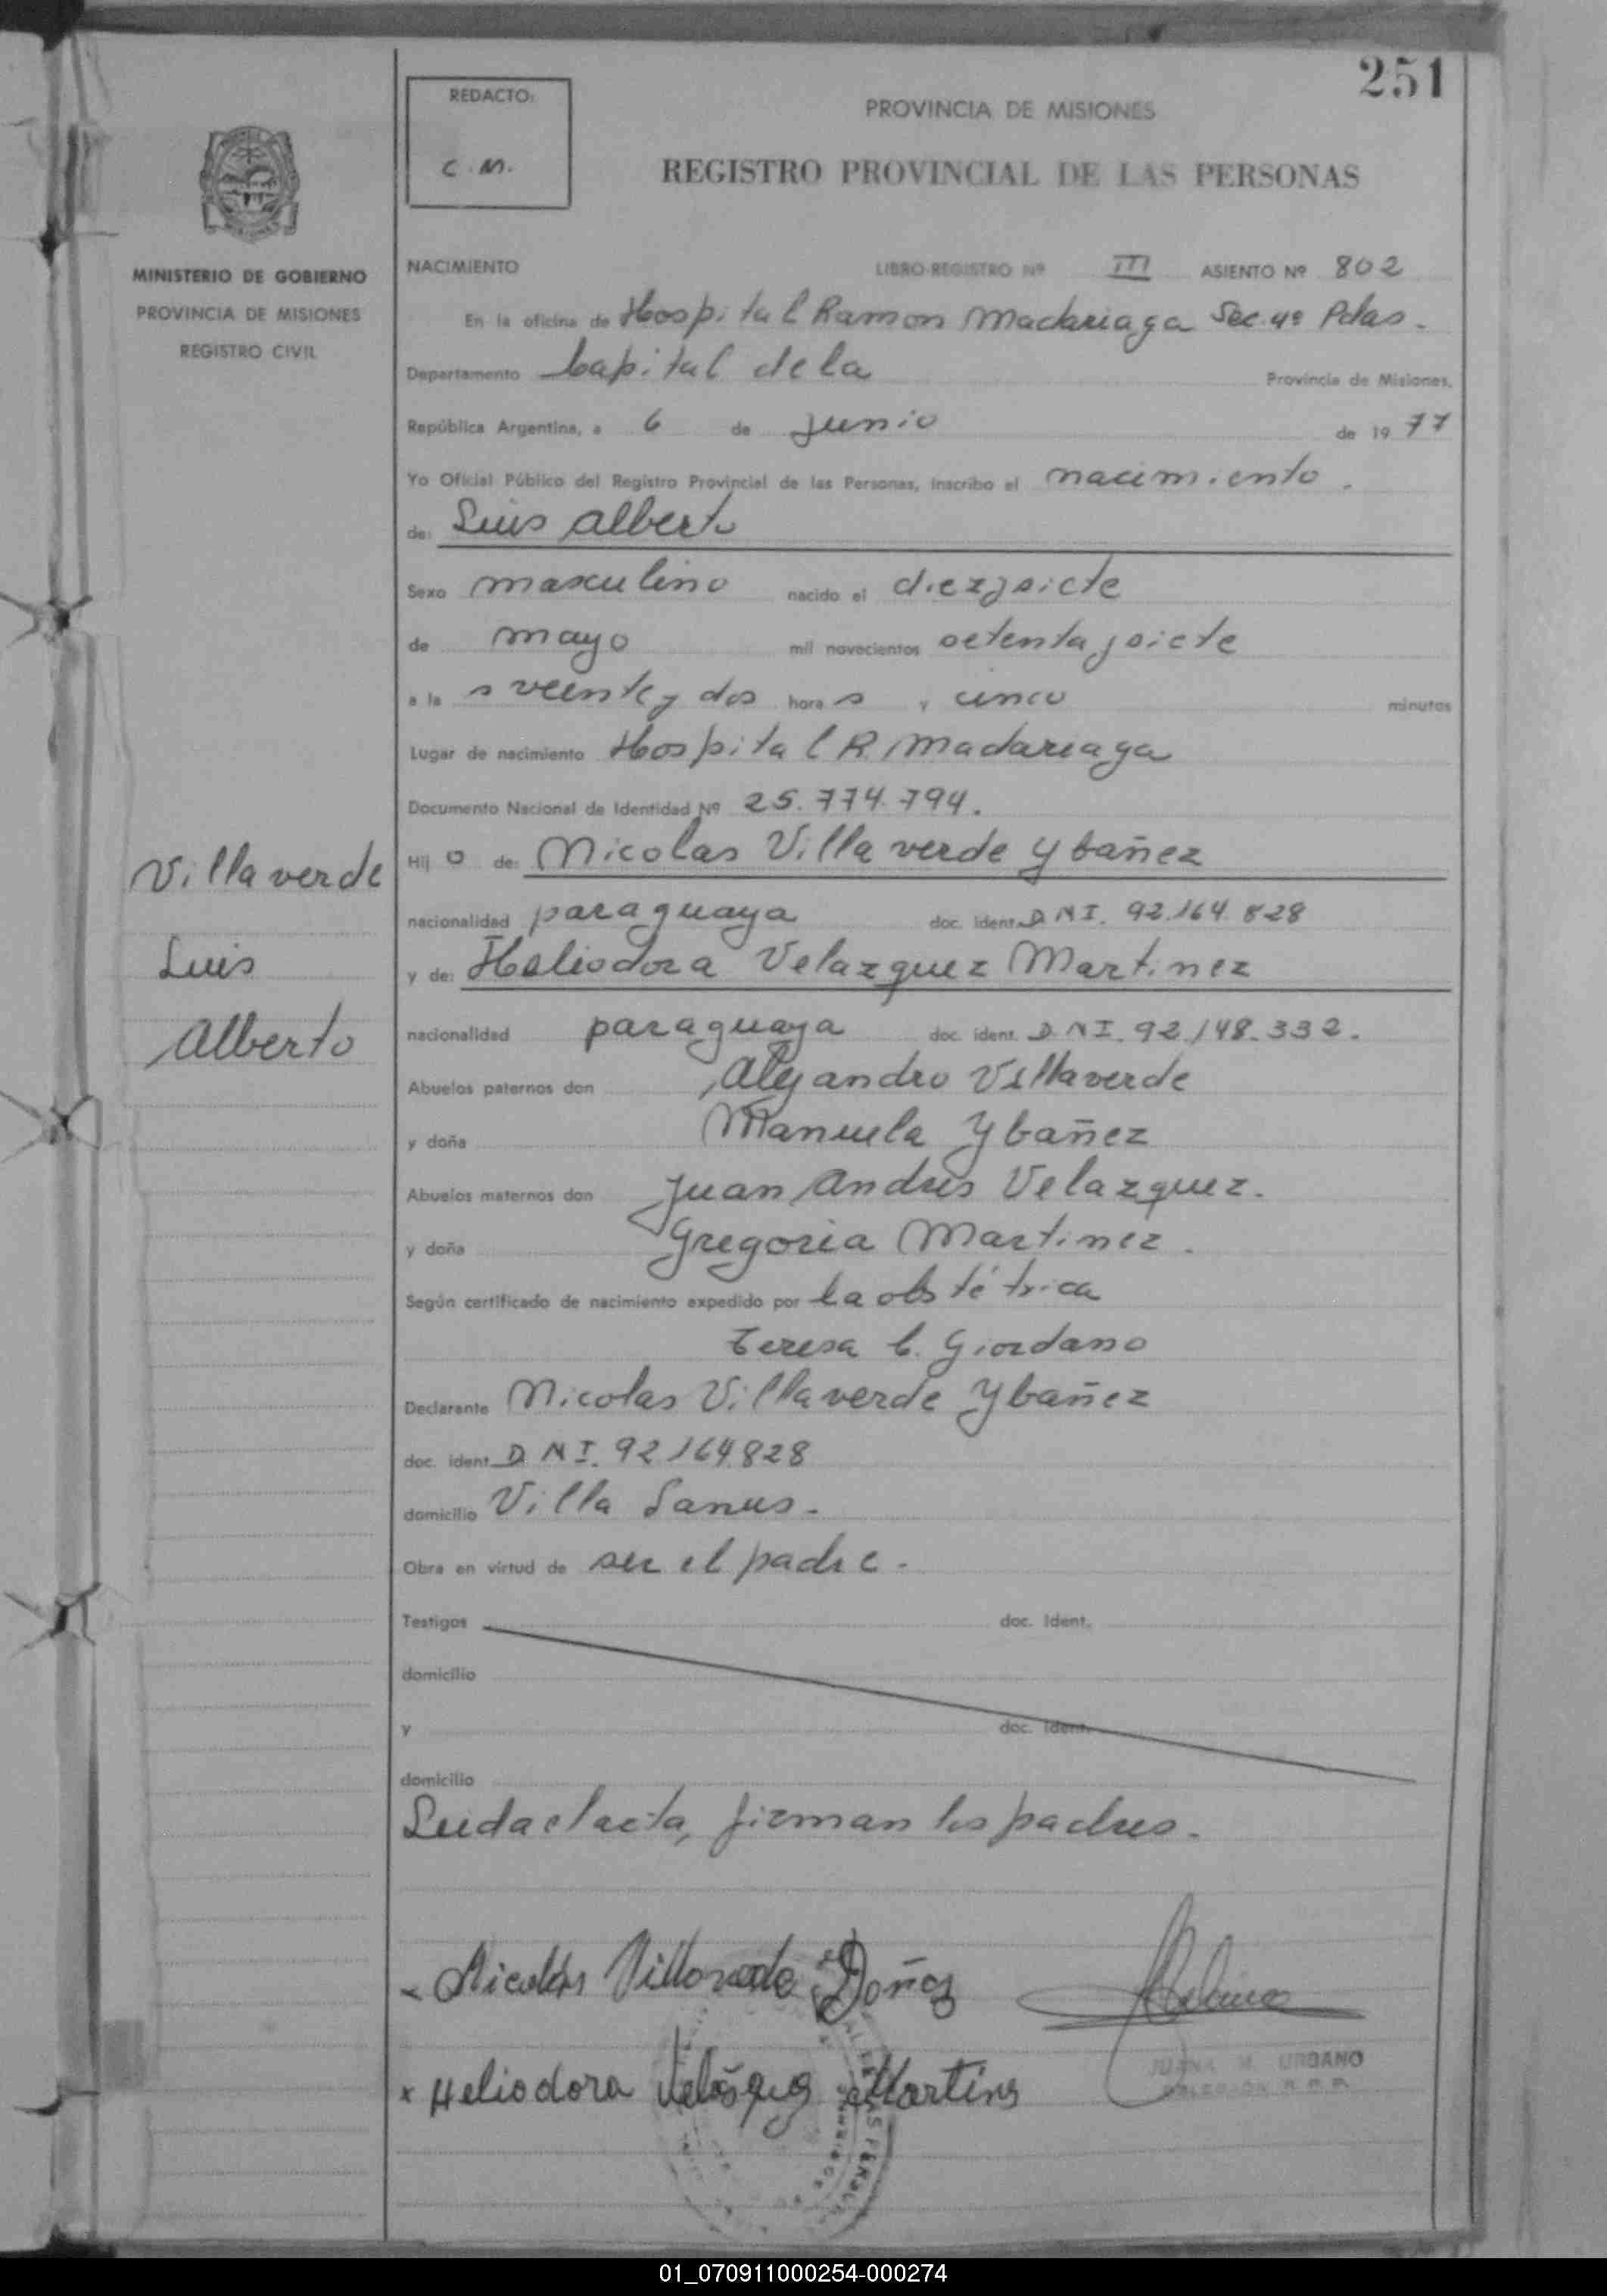 251
REDACTO:
C. M.
PROVINCIA DE MISIONES
REGISTRO PROVINCIAL DE LAS PERSONAS
MINISTERIO DE GOBIERNO
PROVINCIA DE MISIONES
REGISTRO CIVIL
NACIMIENTO LIBRO-REGISTRO Nº III ASIENTO Nº 802
En la oficina de Hospital Ramon Madariaga Sec. 4ª Pdas.
Departamento Capital de la Provincia de Misiones,
República Argentina, a 6 de junio de 19 77
Yo Oficial Público del Registro Provincial de las Personas, inscribo el nacimiento.
de: Luis Alberto
Sexo masculino nacido el diezysiete
de mayo mil novecientos setentaysiete
a la s veinte y dos hora s y cinco minutos
Lugar de nacimiento Hospital R. Madariaga
Documento Nacional de Identidad Nº 25.774.794.
Hij o de: Nicolas Villaverde Ybañez
nacionalidad paraguaya doc. ident. D.N.I. 92.164.828
y de: Heliodora Velazquez Martinez
nacionalidad paraguaya doc. ident. D.N.I. 92.148.332.
Villaverde
Luis
Alberto
Abuelos paternos don Alejandro Villaverde
y doña Manuela Ybañez
Abuelos maternos don Juan Andres Velazquez.
y doña Gregoria Martinez.
Según certificado de nacimiento expedido por la obstétrica
Teresa C. Giordano
Declarante Nicolas Villaverde Ybañez
doc. ident. D.N.I. 92.164.828
domicilio Villa Lanus.
Obra en virtud de ser el padre.
Testigos doc. Ident.
domicilio
y doc. Ident.
domicilio
Leida el acta, firman los padres.
x Heliodora Martines
JUANA M. URBANO
01_070911000254-000274